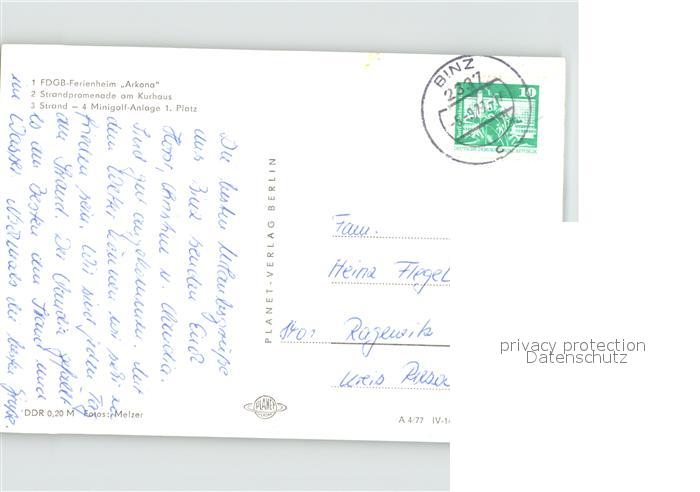 1 FDGB-Ferienheim „Arkona"
2 Strandpromenade am Kurhaus
3 Strand — 4 Minigolf-Anlage 1. Platz
BINZ
2337
10
DEUTSCHE DEMOKRATISCHE REPUBLIK
Die besten Urlaubsgrüße
aus Binz senden Euch
Horst, Christine u. Claudia.
Sind gut angekommen. Mit
dem Wetter können wir sehr zu-
frieden sein. Wir sind jeden Tag
am Strand. Der Claudia gefällt
es am Besten am Strand und
im Wasser. Nochmals die besten Grüße.
PLANET-VERLAG BERLIN
Fam.
Heinz Flegel
Kreis
DDR 0,20 M Fotos: Melzer
PLANET
A 4/77 IV-14
privacy protection
Datenschutz